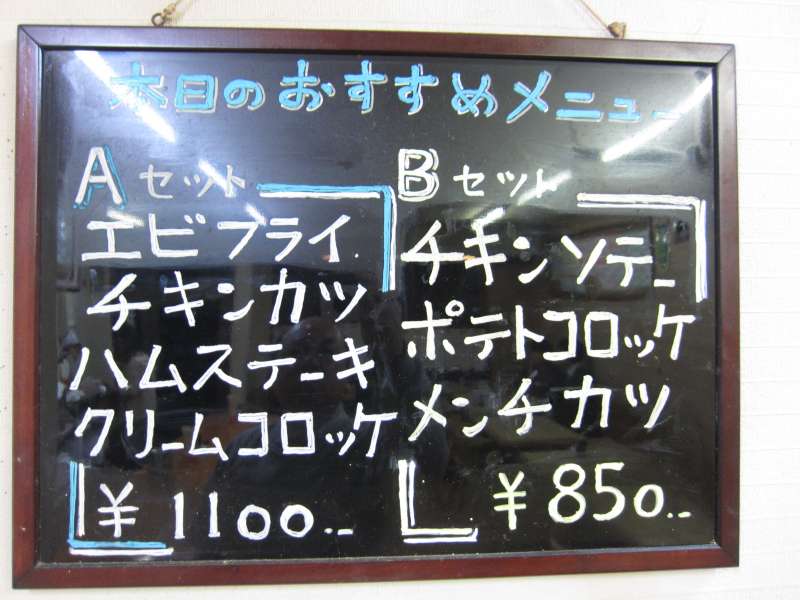 本日のおすすめメニュー
Aセット
エビフライ
チキンカツ
ハムステーキ
クリームコロッケ
¥1100.-
Bセット
チキンソテー
ポテトコロッケ
メンチカツ
¥850.-